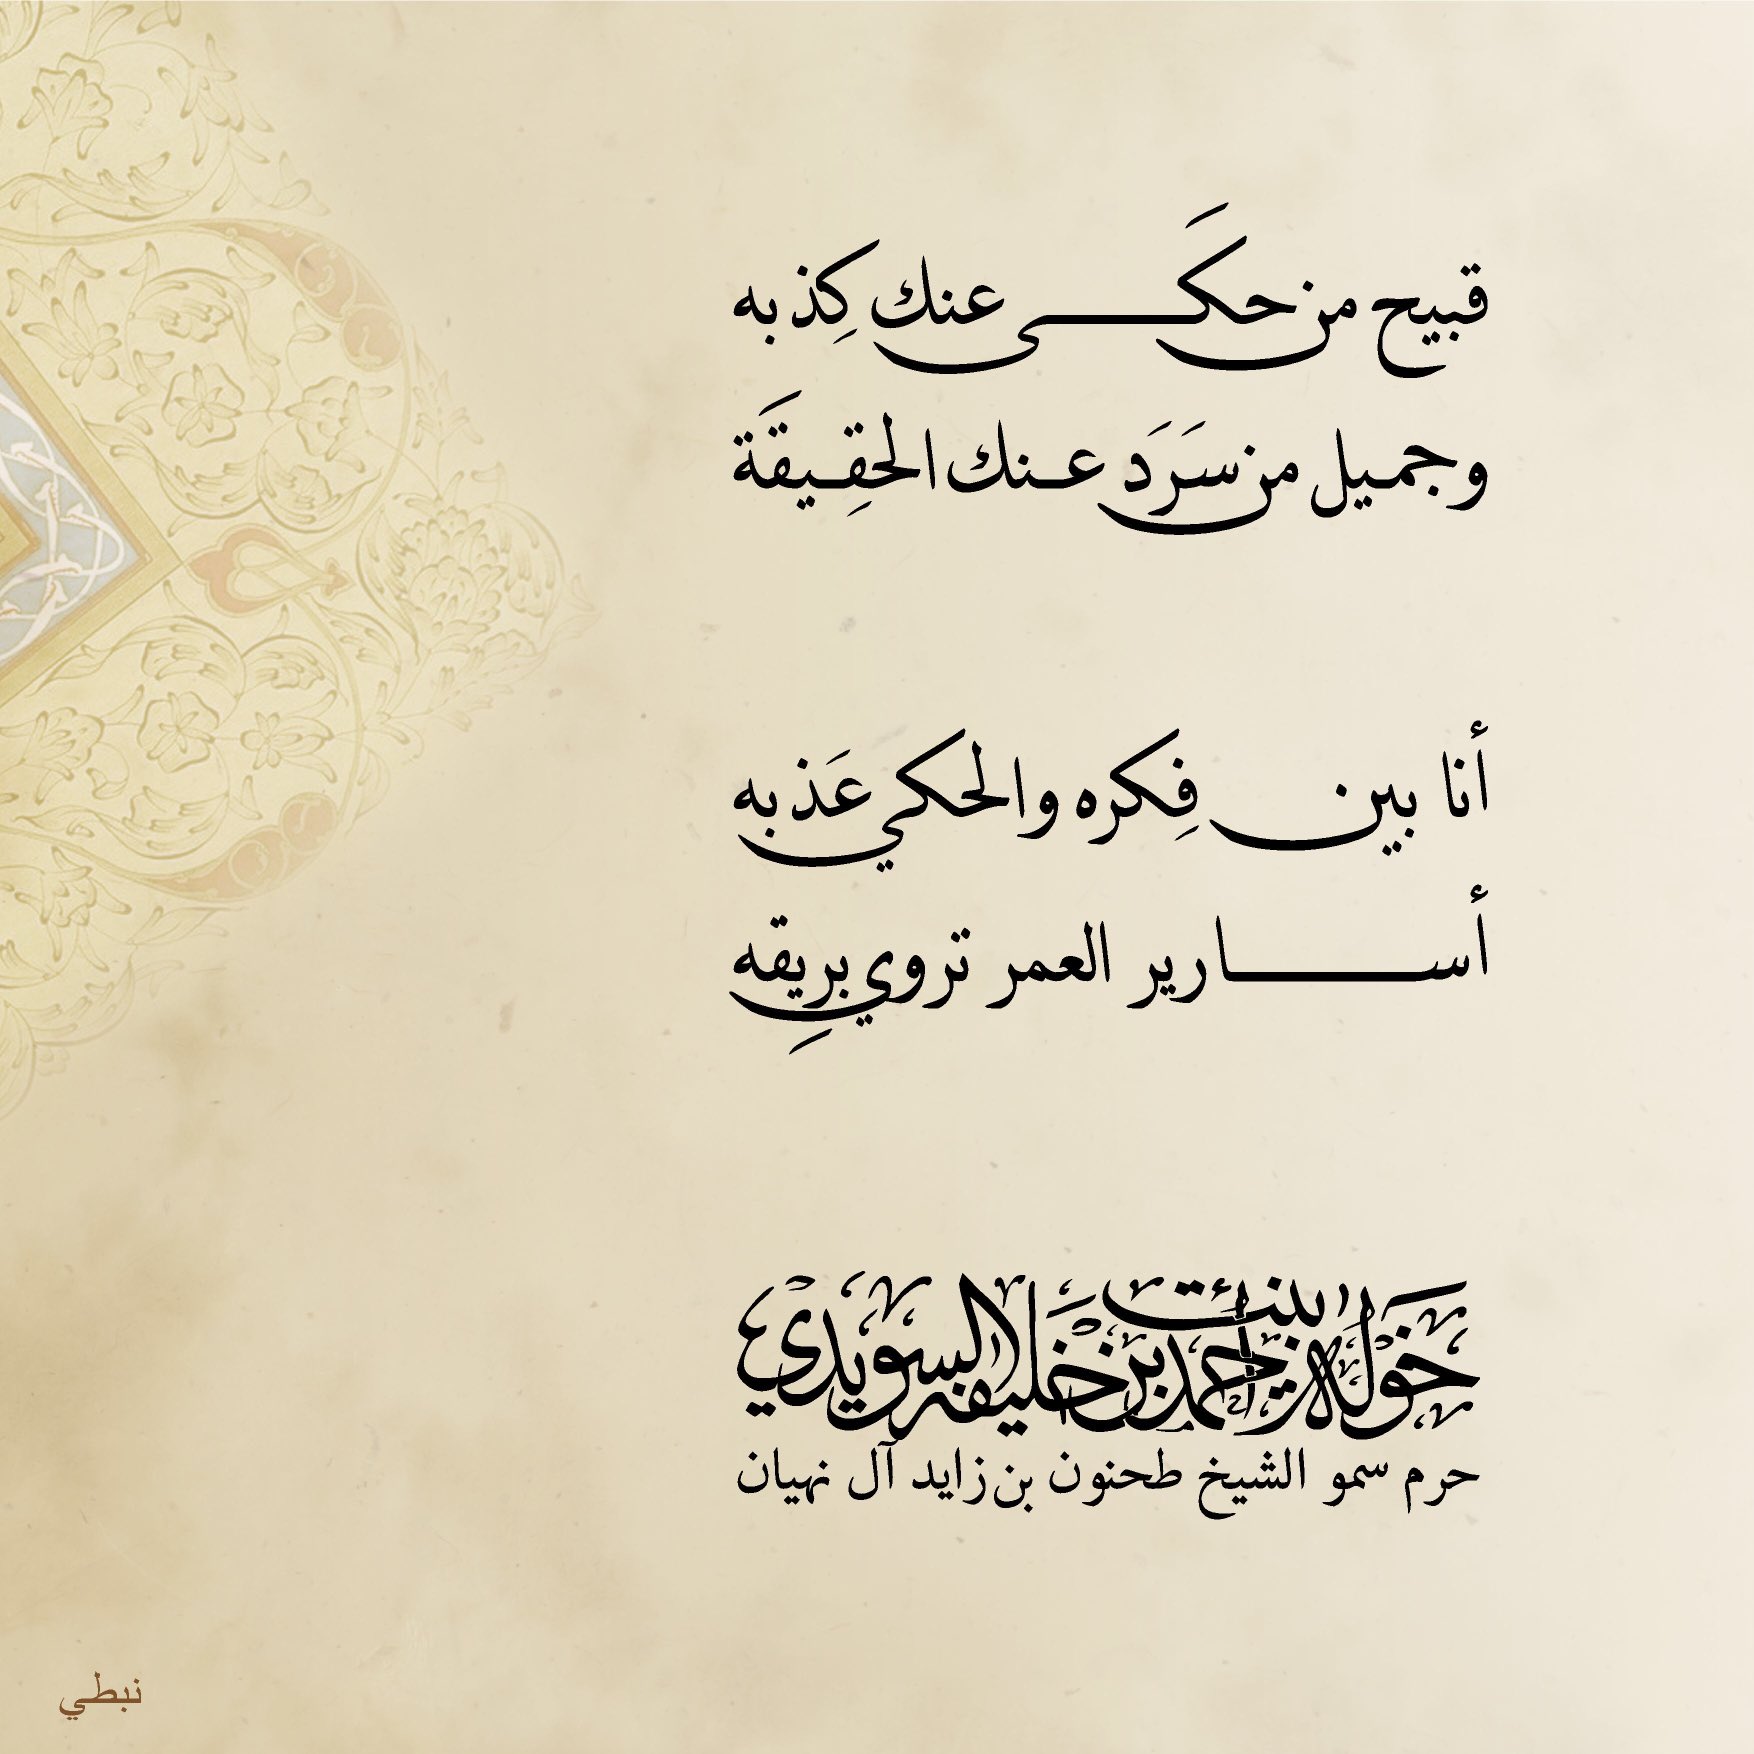 قبيح من حكَى عنك كِذبه
وجميل من سَرَد عنك الحقِيقَة
أنا بين فِكره والحكي عَذبه
أسارير العمر تروي برِيقه
خَوْلة بنت أحمد بن خليفة السويدي
حرم سمو الشيخ طحنون بن زايد آل نهيان
نبطي